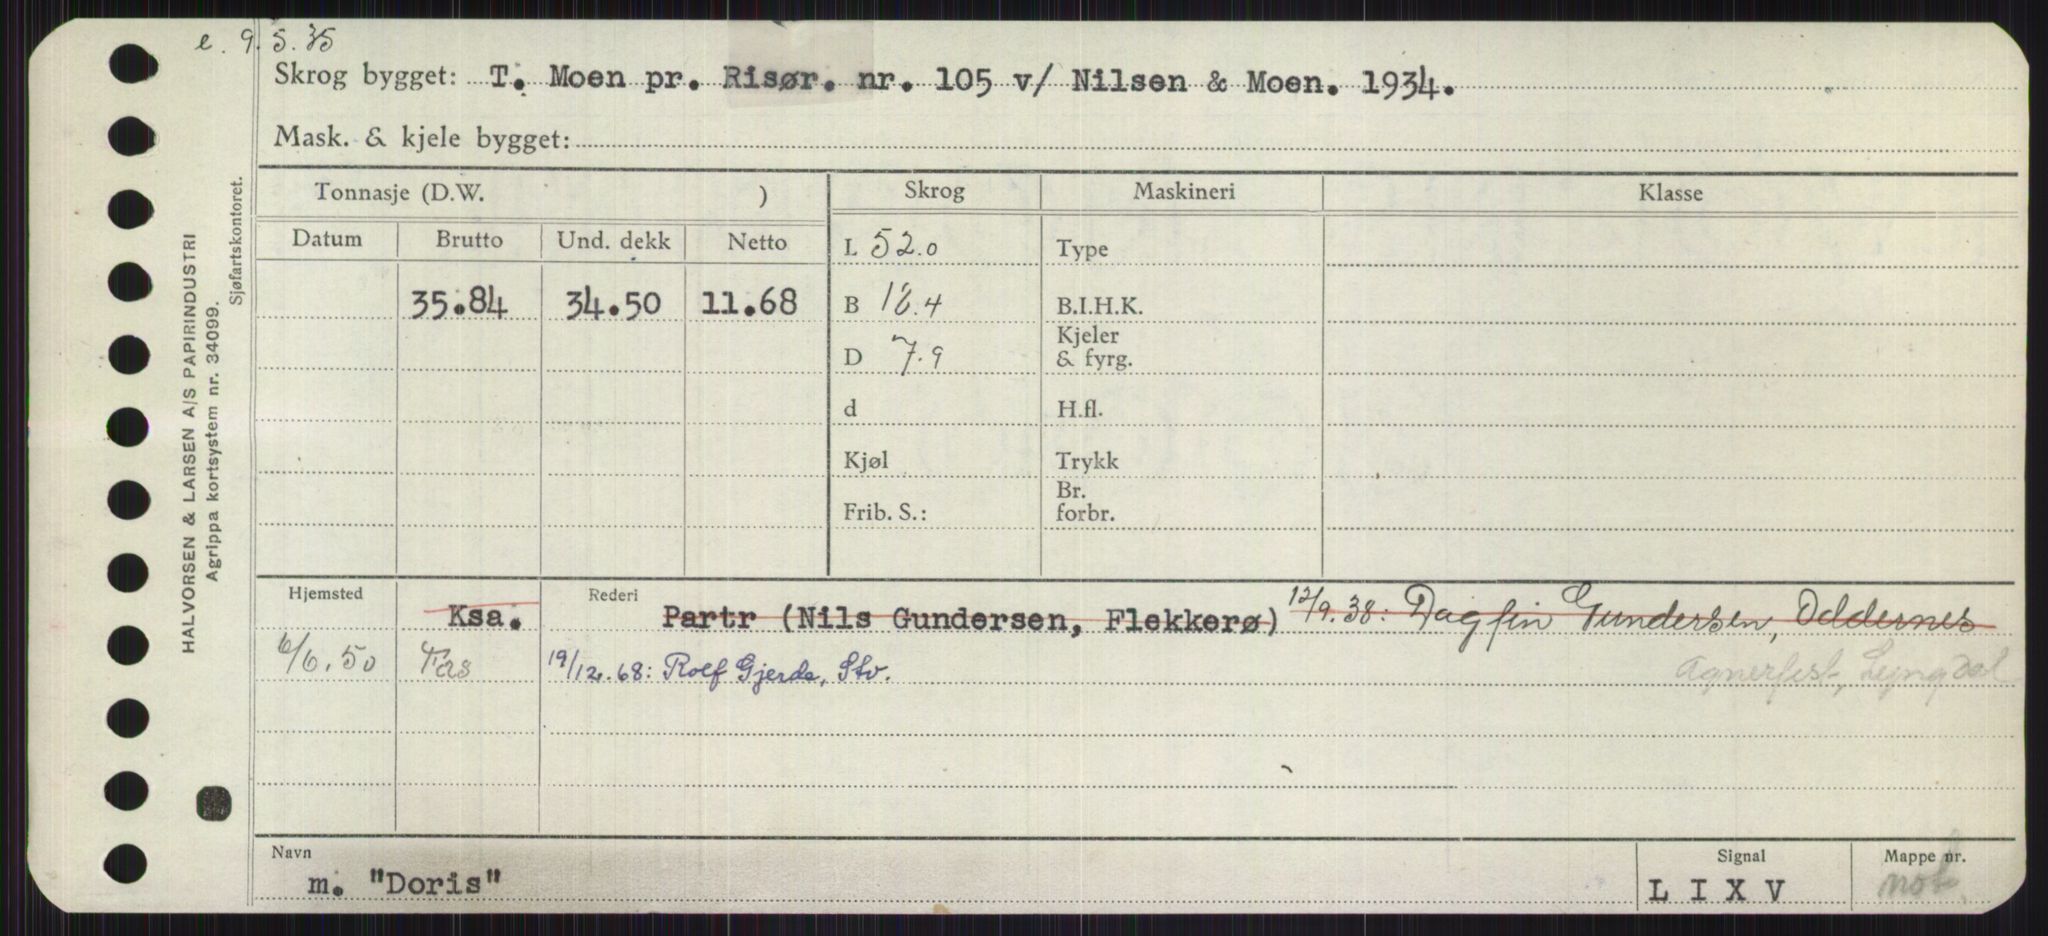 e. 9.5.35
Skrog bygget: T. Moen pr. Risør. nr. 105 v/ Nilsen & Moen. 1934.
Mask. & kjele bygget:
HALVORSEN & LARSEN A/S PAPIRINDUSTRI
Agrippa kortsystem nr. 34099.
Sjøfartskontoret.
Tonnasje (D.W. )
Skrog Maskineri Klasse
Datum Brutto Und. dekk Netto
L 52.0 Type
35.84 34.50 11.68 B 18.4 B.I.H.K.
D 7.9 Kjeler & fyrg.
d H.fl.
Kjøl Trykk
Frib. S.: Br. forbr.
Hjemsted Ksa. Rederi Partr (Nils Gundersen, Flekkerø) 12/9.38: Dagfin Gundersen, Oddernes
6/6.50 Fas 19/12.68: Rolf Gjerde, Stv. Lyngdal
Navn Signal Mappe nr.
m. "Doris" L I X V not.